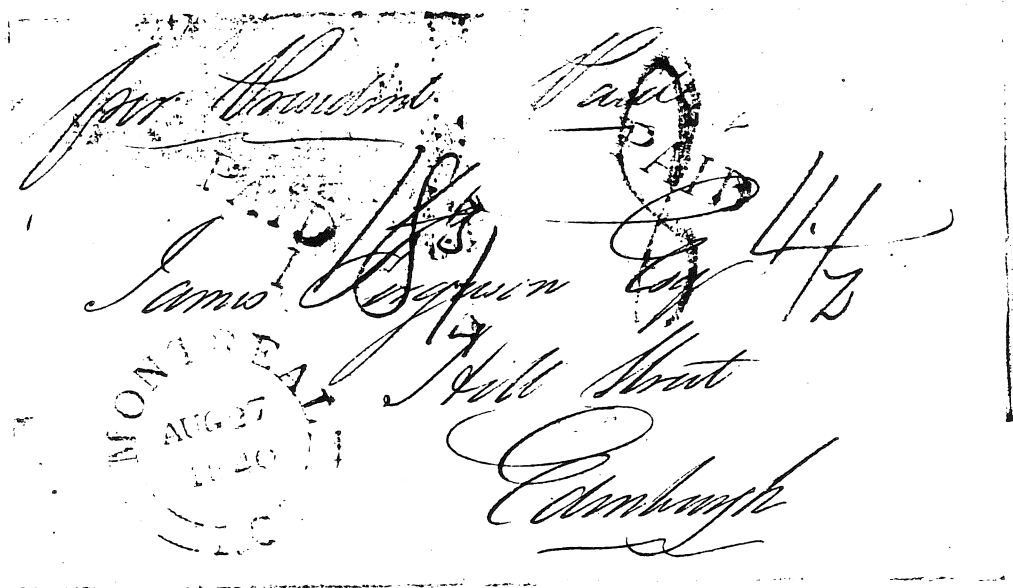 per President Paid
PAID
PAID
4/2
James Ferguson Esq
Hill Street
Edinburgh
MONTREAL
AUG 27
1840
L.C